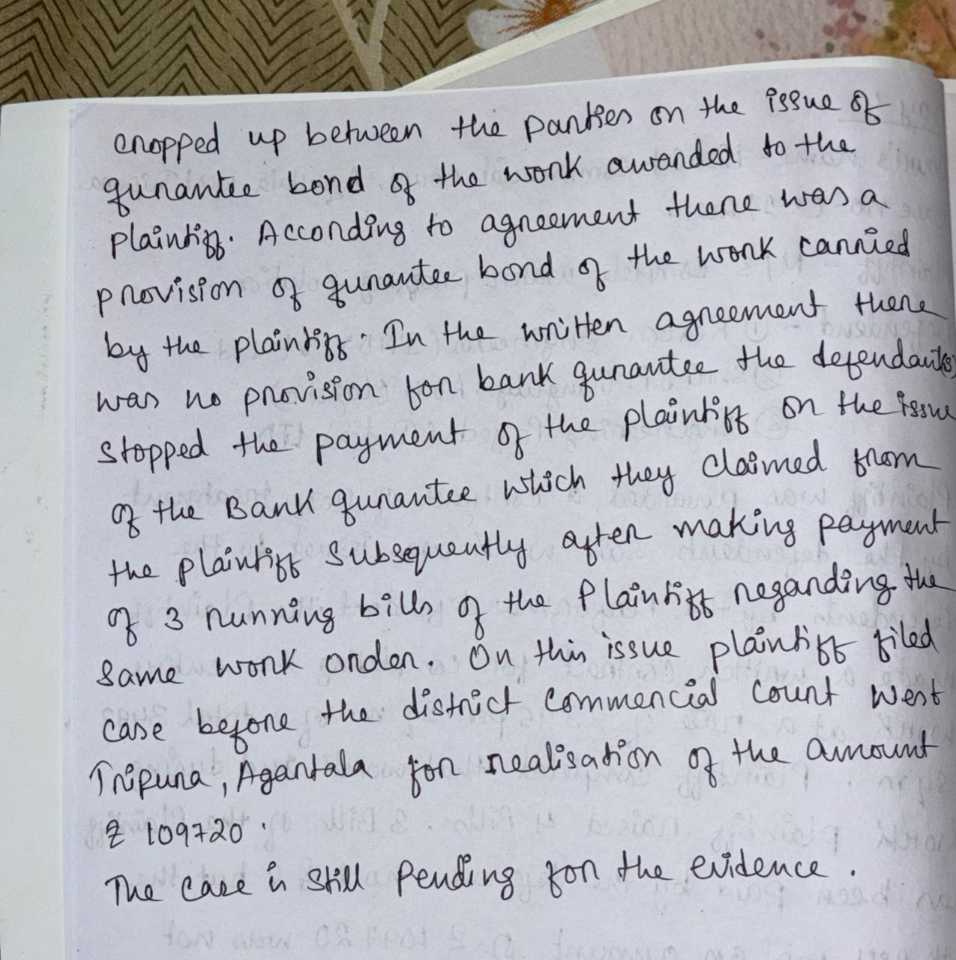 cropped up between the parties on the issue of
gurantee bond of the work awarded to the
plaintiff. According to agreement there was a
provision of gurantee bond of the work carried
by the plaintiff. In the written agreement there
was no provision for bank gurantee the defendants
stopped the payment of the plaintiff on the issue
of the Bank gurantee which they claimed from
the plaintiff subsequently after making payment
of 3 running bills of the Plaintiff regarding the
same work order. On this issue plaintiff filed
case before the district commercial court West
Tripura, Agartala for realisation of the amount
₹ 109720.
The case is still Pending for the evidence.